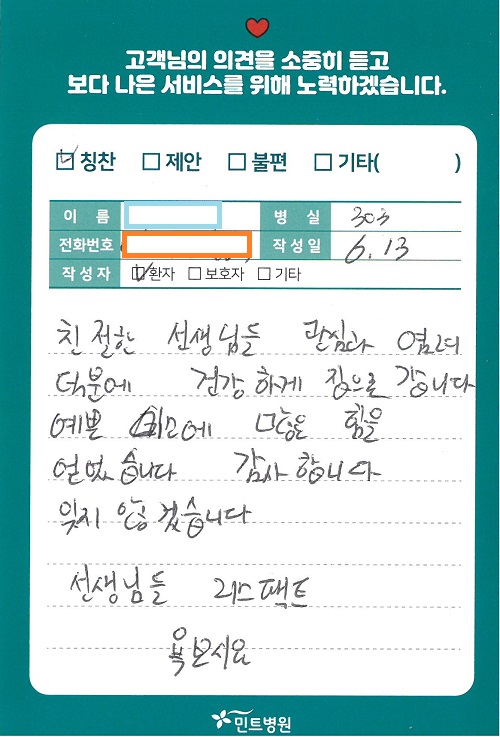 고객님의 의견을 소중히 듣고
보다 나은 서비스를 위해 노력하겠습니다.
칭찬 제안 불편 기타( )
이 름 병 실 303
전화번호 작 성 일 6.13
작 성 자 환자 보호자 기타
친절한 선생님들 관심과 염려
덕분에 건강하게 집으로 갑니다
예쁜 미모에 많은 힘을
얻었습니다 감사합니다
잊지 않겠습니다
선생님들 리스팩트
복보시요
민트병원